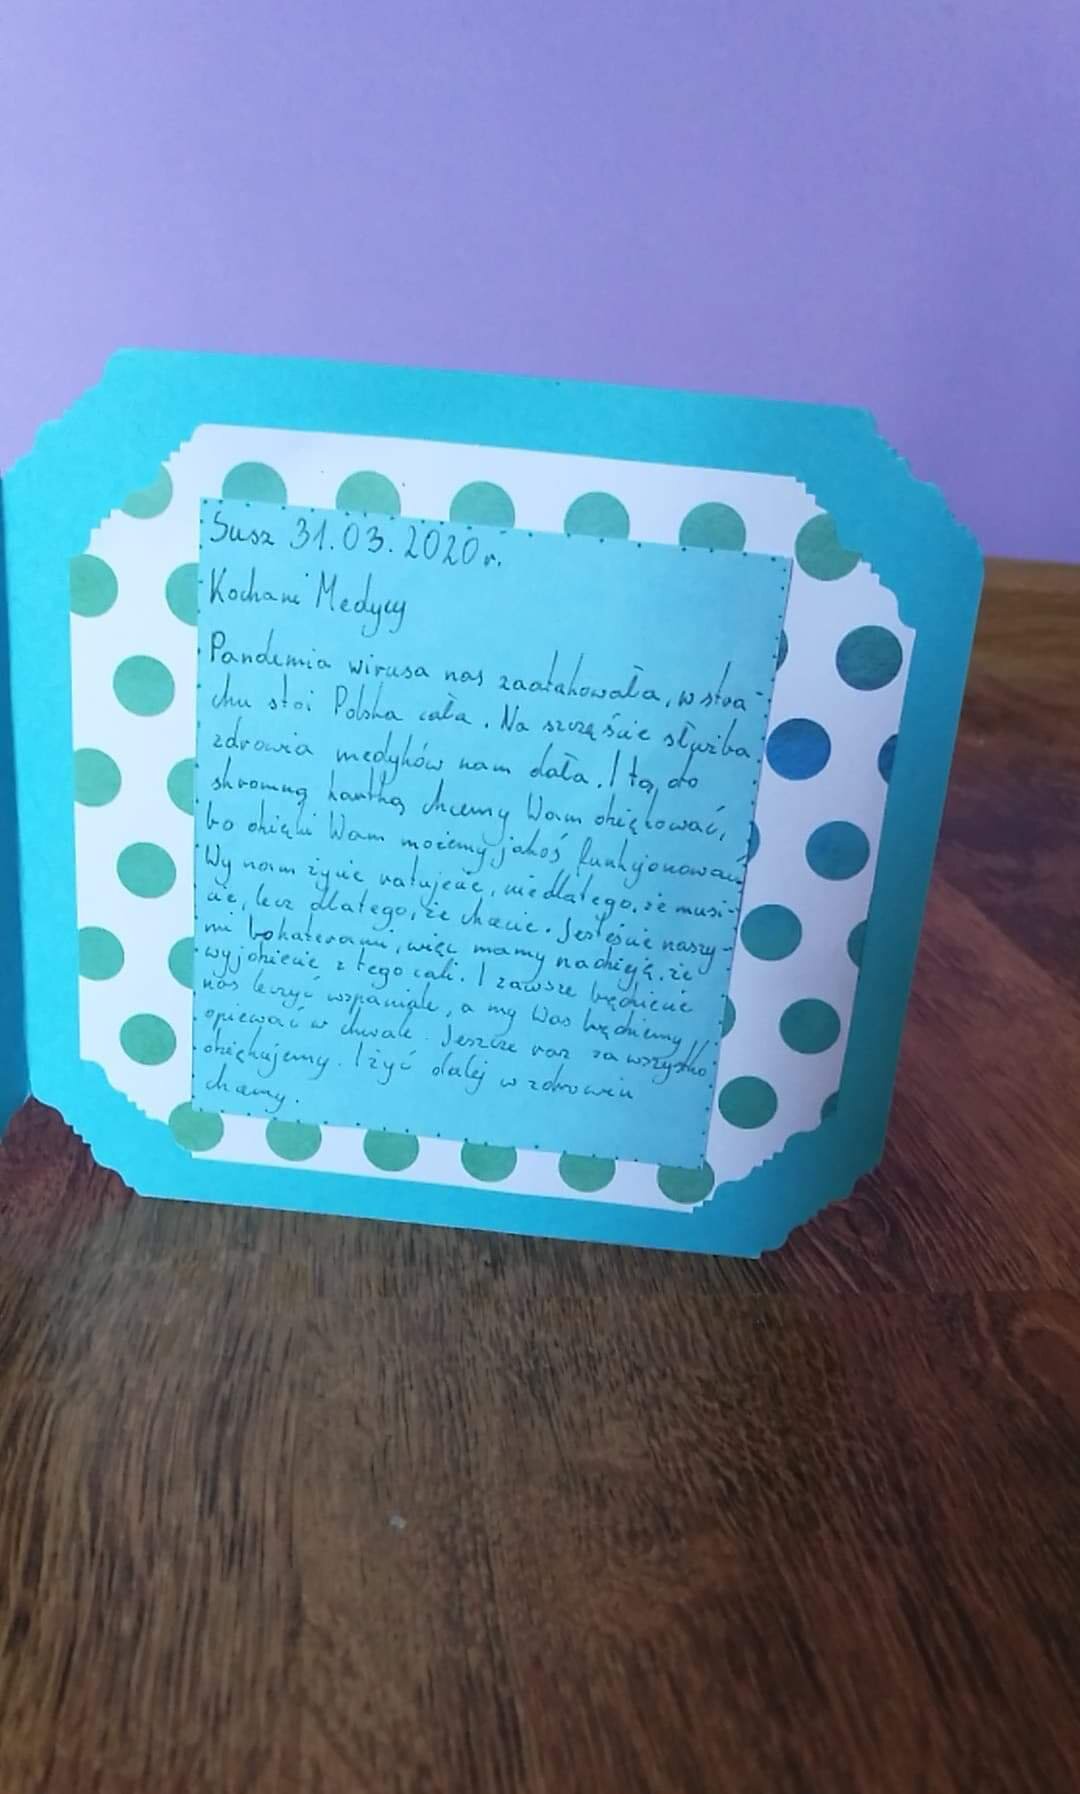 Susz 31.03.2020r.
Kochani Medycy
Pandemia wirusa nas zaatakowała, w stra-
chu stoi Polska cała. Na szczęście służba
zdrowia medyków nam dała. I tą, do
skromną kartką chcemy Wam dziękować,
bo dzięki Wam możemy jakoś funkcjonować.
Wy nam życie ratujecie, nie dlatego, że musi-
cie, lecz dlatego, że chcecie. Jesteście naszy-
mi bohaterami, więc mamy nadzieję, że
wyjdziecie z tego cali. I zawsze będziecie
nas leczyć wspaniale, a my Was będziemy
opiewać w chwale. Jeszcze raz za wszystko
dziękujemy. I żyć dalej w zdrowiu
chcemy.